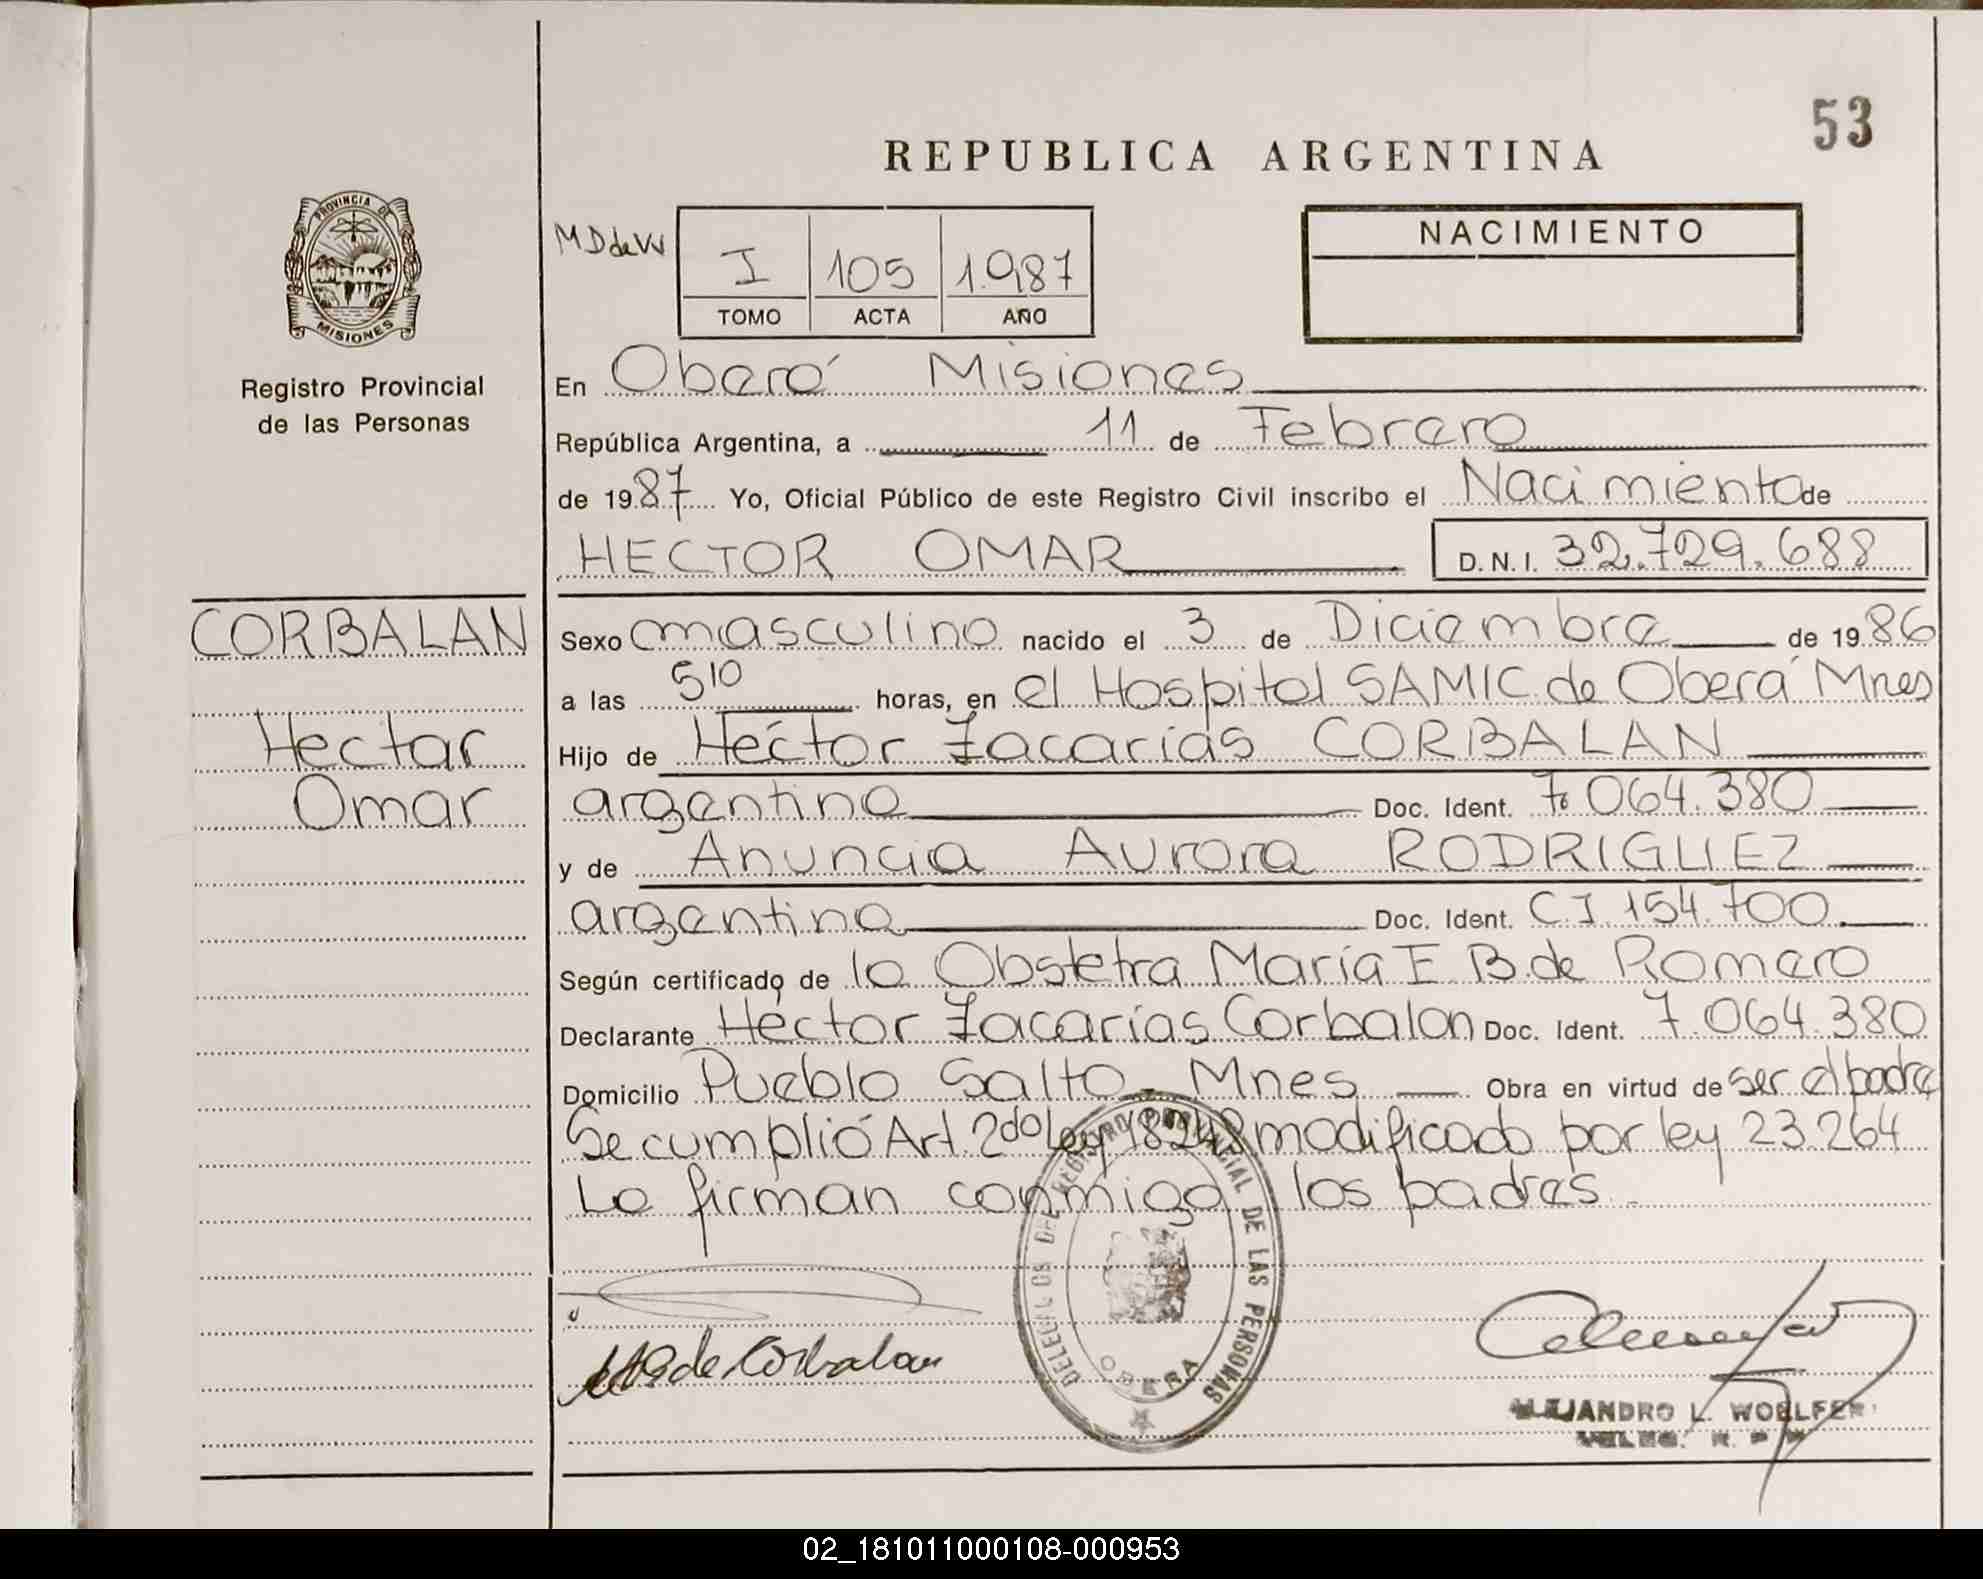 53
REPUBLICA ARGENTINA
PROVINCIA DE
MISIONES
Registro Provincial
de las Personas
MD de W
I 105 1.987
TOMO ACTA AÑO
NACIMIENTO
En Oberá Misiones
República Argentina, a 11 de Febrero
de 1987 Yo, Oficial Público de este Registro Civil inscribo el Nacimiento de
HECTOR OMAR D.N.I. 32.729.688
CORBALAN
Hector
Omar
Sexo masculino nacido el 3 de Diciembre de 1986
a las 5 10 horas, en el Hospital SAMIC de Oberá Mnes
Hijo de Héctor Zacarías CORBALAN
argentino Doc. Ident. 7.064.380
y de Anuncia Aurora RODRIGUEZ
argentina Doc. Ident. C.I. 154.700
Según certificado de la Obstetra María E. B. de Romero
Declarante Héctor Zacarías Corbalan Doc. Ident. 7.064.380
Domicilio Pueblo Salto Mnes Obra en virtud de ser el padre
Se cumplió Art. 2do Ley 18248 modificado por ley 23.264
Lo firman conmigo los padres
de Corbalan
REGISTRO PROVINCIAL DE LAS PERSONAS
OBERA
ALEJANDRO L. WOELFER
02_181011000108-000953